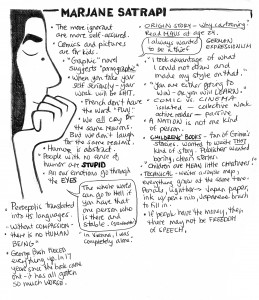 MARJANE SATRAPI
• The more ignorant
are more self-assured.
• Comics and pictures
are for kids.
• "Graphic" novel
suggests "pornographic"
• When you take your
self seriously - your
work will be SHIT.
• French don't have
the word "FUN"
• We all cry for
the same reasons.
But we don't laugh
for the same reasons.
• Humour is abstract.
People with no sense of
humour are STUPID
• All our emotions go through
the EYES
The whole world
can go to Hell if
you have that
one person who
is there and
stable.
• In Vienna, I was
completely alone.
• Persepolis translated
into 43 languages.
• WITHOUT COMPASSION -
there is no HUMAN
BEING"
• George Bush
everything up. In 17
years since the book came
out - it has all gotten
so much worse.
• ORIGIN STORY - Why cartooning?
Read MAUS at age 22.
• I always wanted
to be a thief
GERMAN
EXPRESSIONISM
• "I took advantage of what
I could not draw and
made my style on that."
• "You are either trying to
win - or you win (LEARN)."
• COMIC VS. CINEMA
isolated - collective work
active reader - passive
• A NATION is not one kind
of person.
• CHILDREN' BOOKS - Fan of Grimm's
Stories. Wanted to write THAT
kind of story. Publisher wanted
boring, clean stories.
• "Children are MEAN little creatures!"
• TECHNICAL - Write a simple map,
everything grew at the same time.
Pencils, lightbox - Japan paper,
ink w/pen & nib, Japanese brush
to fill in.
• If people have the money, then
there may not be FREEDOM
of SPEECH,